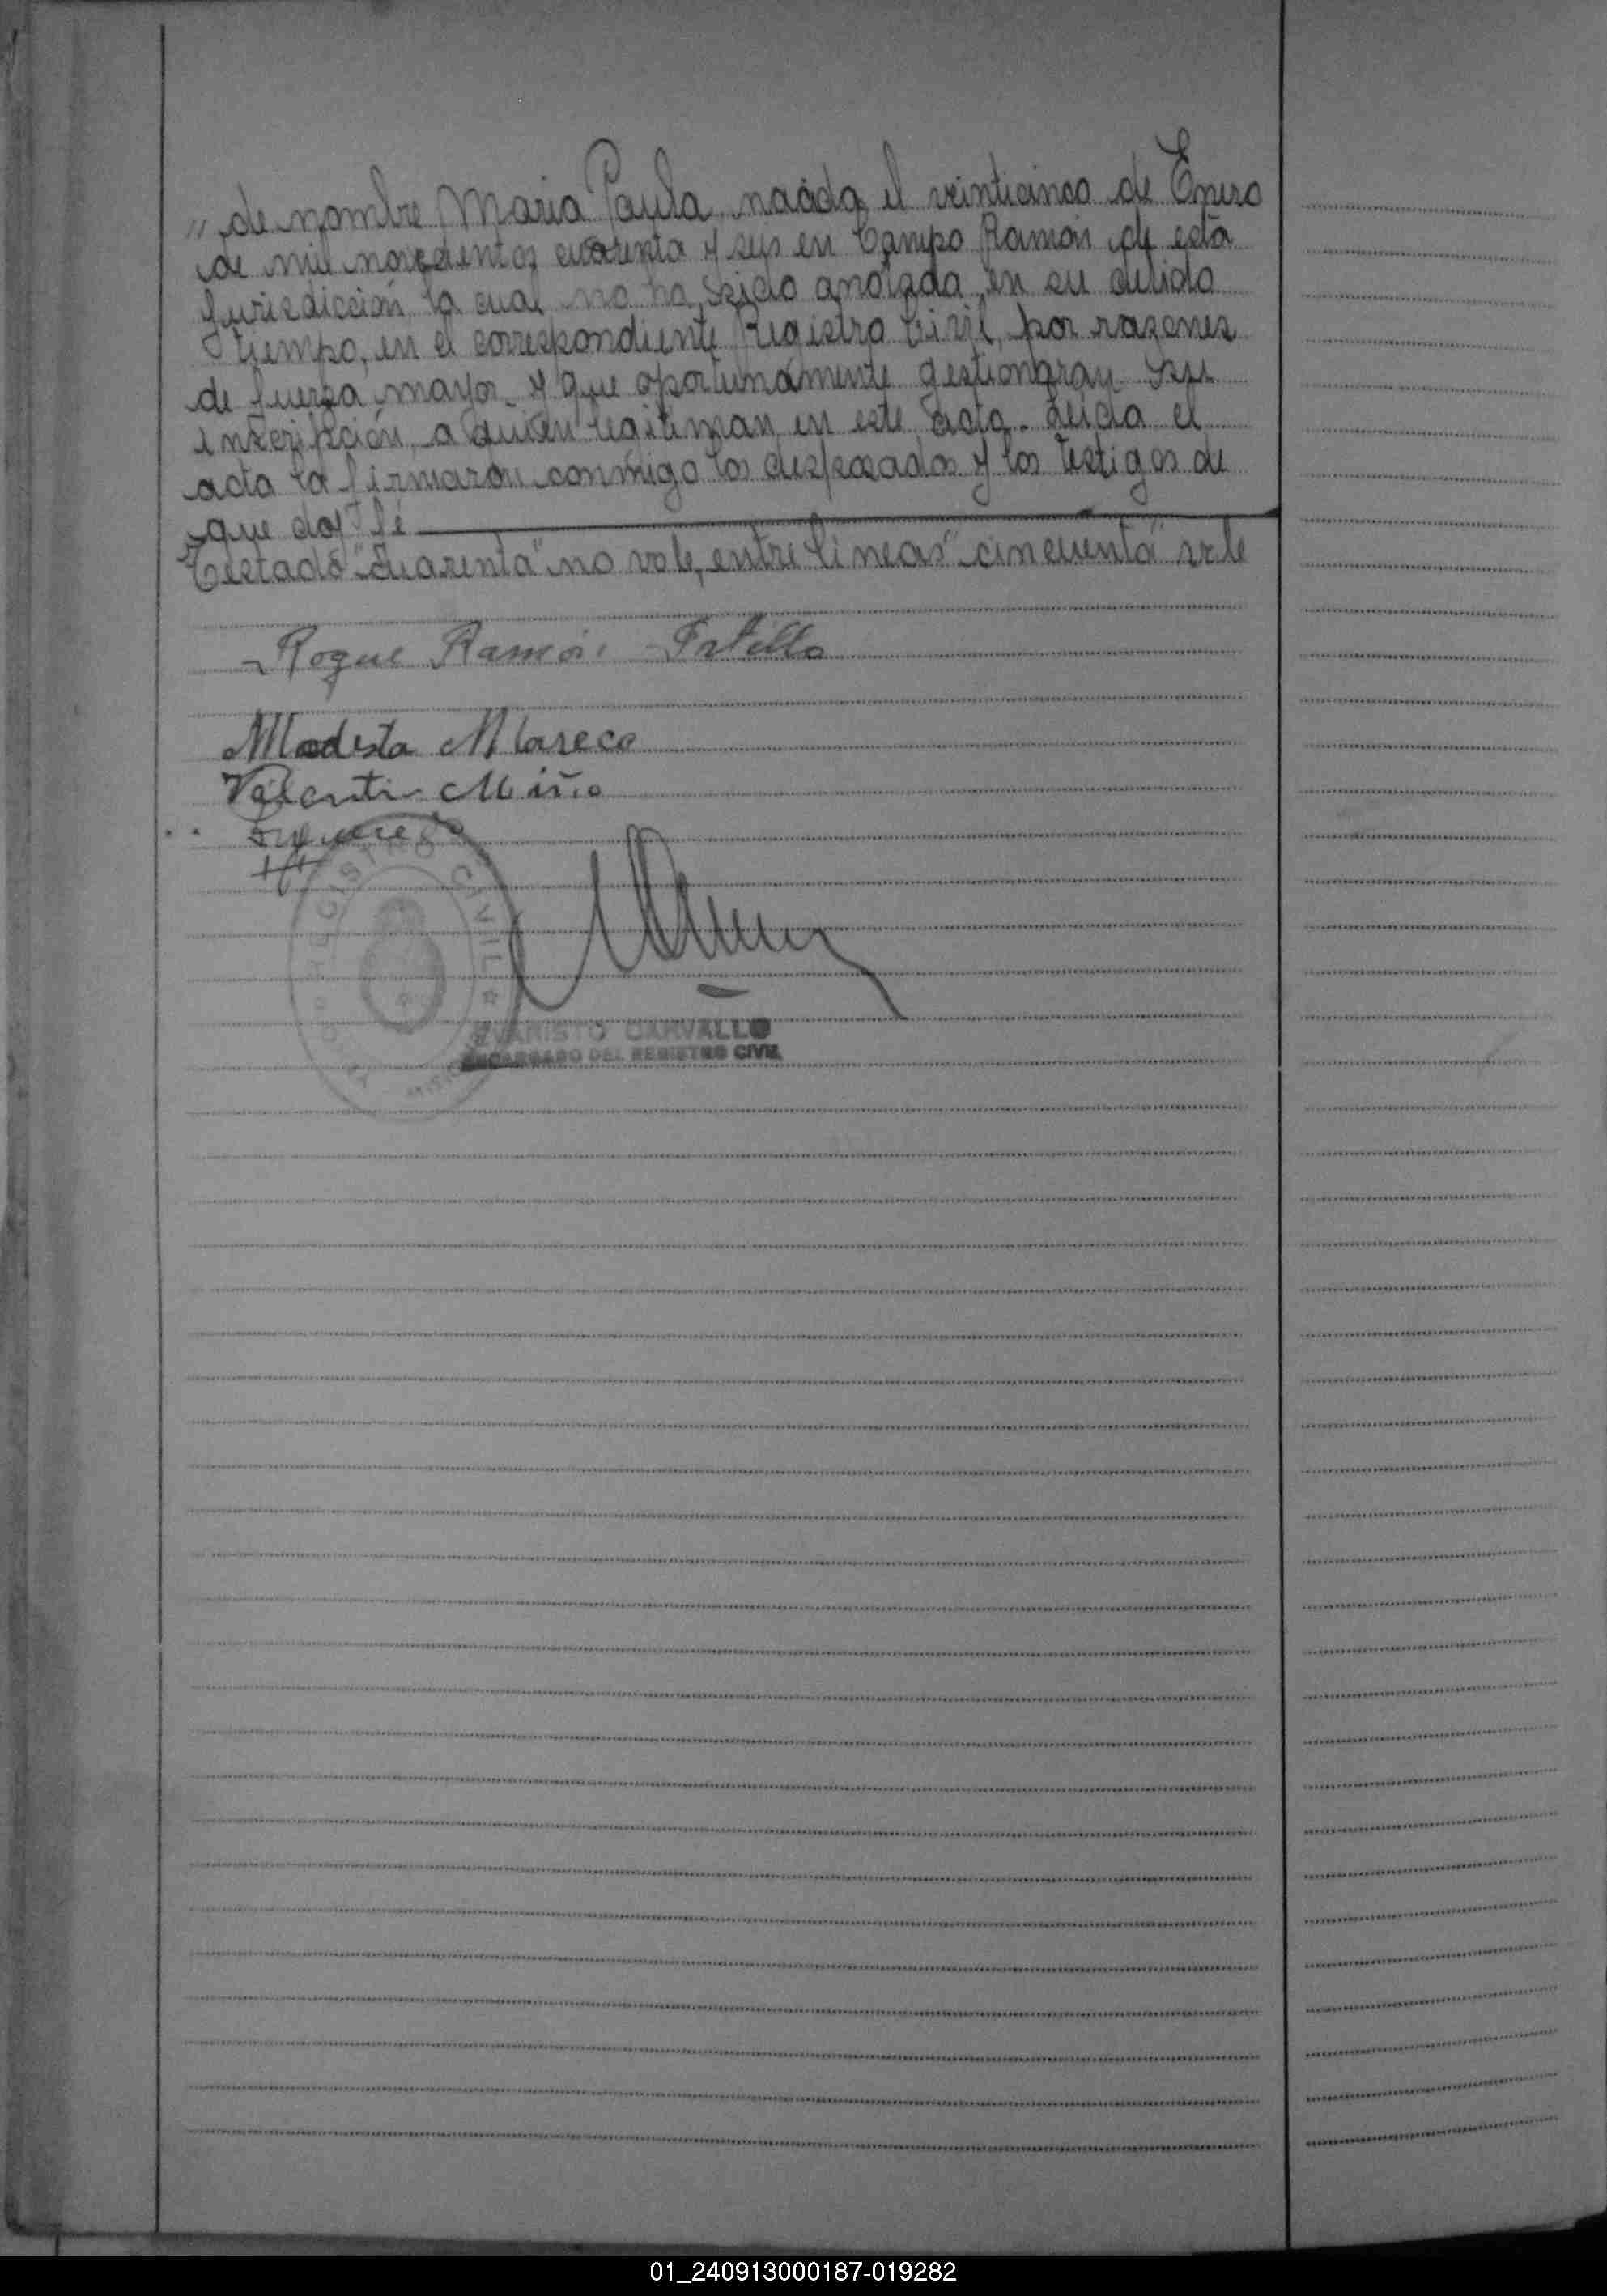 " de nombre Maria Paula, nacida el veinticinco de Enero
de mil novecientos cuarenta y seis en Campo Ramón de esta
Jurisdicción, la cual no ha sido anotada, en su debido
tiempo, en el correspondiente Registro Civil, por razones
de fuerza mayor y que oportunamente gestionaran su
inscripción, a quien legitiman en este acto. Leida el
acta la firmaron conmigo los desposados y los testigos de
que doy fé
Testado "cuarenta" no vale, entre lineas "cincuenta" vale
Roque Ramón
Modesta Mareco
Valentin Miño
REGISTRO CIVIL
EVARISTO CARVALLO
ENCARGADO DEL REGISTRO CIVIL
01_240913000187-019282